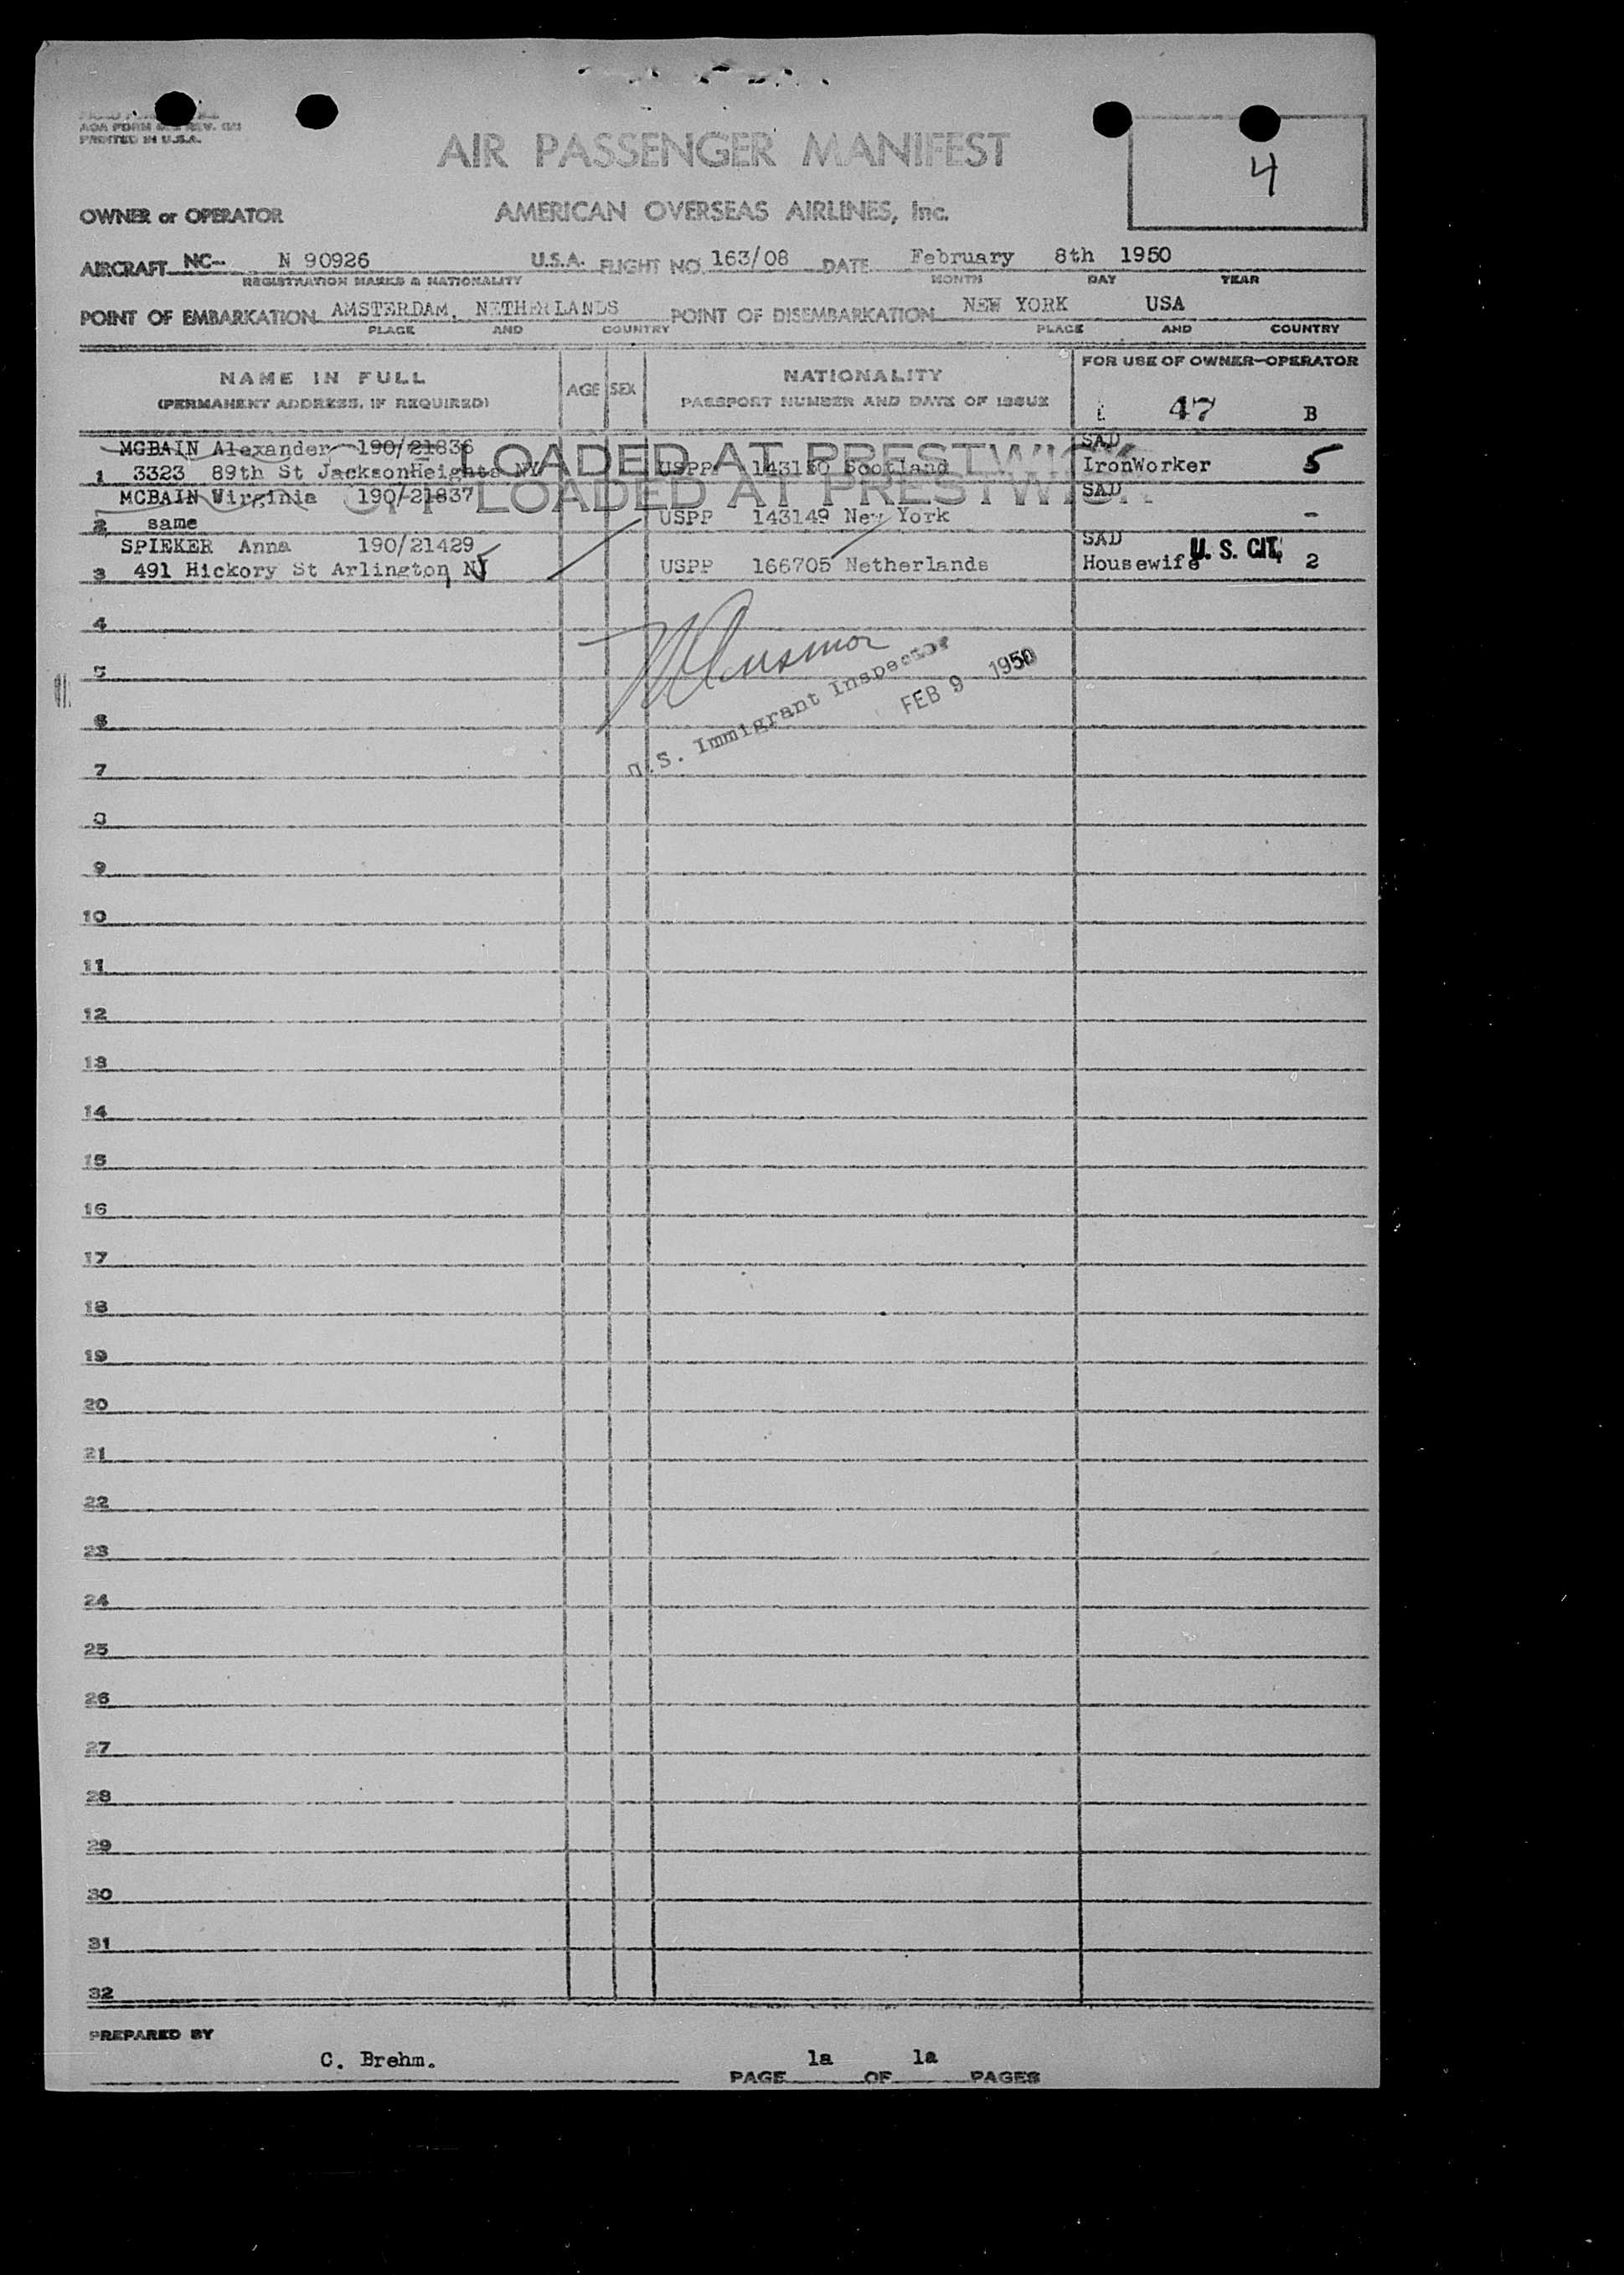 AOA FORM REV.
PRINTED IN U.S.A.
AIR PASSENGER MANIFEST
4
OWNER or OPERATOR AMERICAN OVERSEAS AIRLINES, Inc.
AIRCRAFT NC- N 90926 U.S.A. FLIGHT NO. 163/08 DATE February 8th 1950
REGISTRATION MARKS & NATIONALITY MONTH DAY YEAR
POINT OF EMBARKATION AMSTERDAM, NETHERLANDS POINT OF DISEMBARKATION NEW YORK USA
PLACE AND COUNTRY PLACE AND COUNTRY
NAME IN FULL AGE SEX NATIONALITY FOR USE OF OWNER-OPERATOR
(PERMANENT ADDRESS, IF REQUIRED) PASSPORT NUMBER AND DATE OF ISSUE 47 B
MCBAIN Alexander 190/21836 SAD
LOADED AT PRESTWICK
1 3323 89th St JacksonHeights NY USPP 143150 Scotland IronWorker 5
MCBAIN Virginia 190/21837 SAD
OFFLOADED AT PRESTWICK
2 same USPP 143149 New York -
SPIEKER Anna 190/21429 SAD U. S. CIT.
3 491 Hickory St Arlington NJ USPP 166705 Netherlands Housewife 2
4
5
6
U.S. Immigrant Inspector
FEB 9 1950
7
8
9
10
11
12
13
14
15
16
17
18
19
20
21
22
23
24
25
26
27
28
29
30
31
32
PREPARED BY
C. Brehm.
PAGE 1a OF 1a PAGES